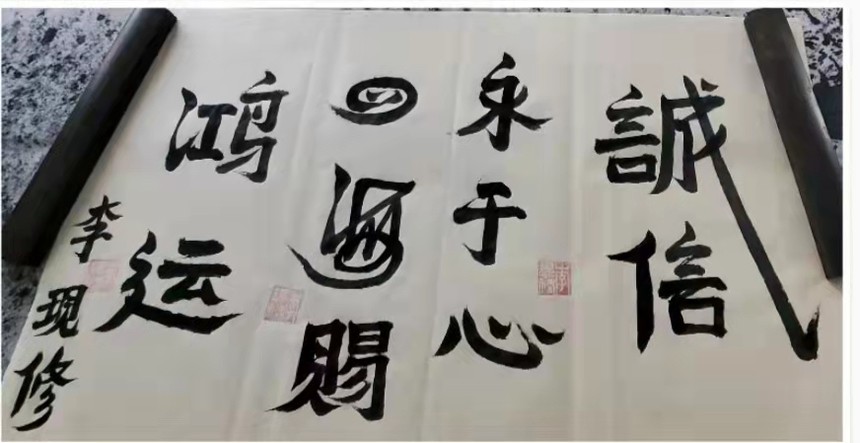 誠信
永于心
四海赐
鸿运
李现修